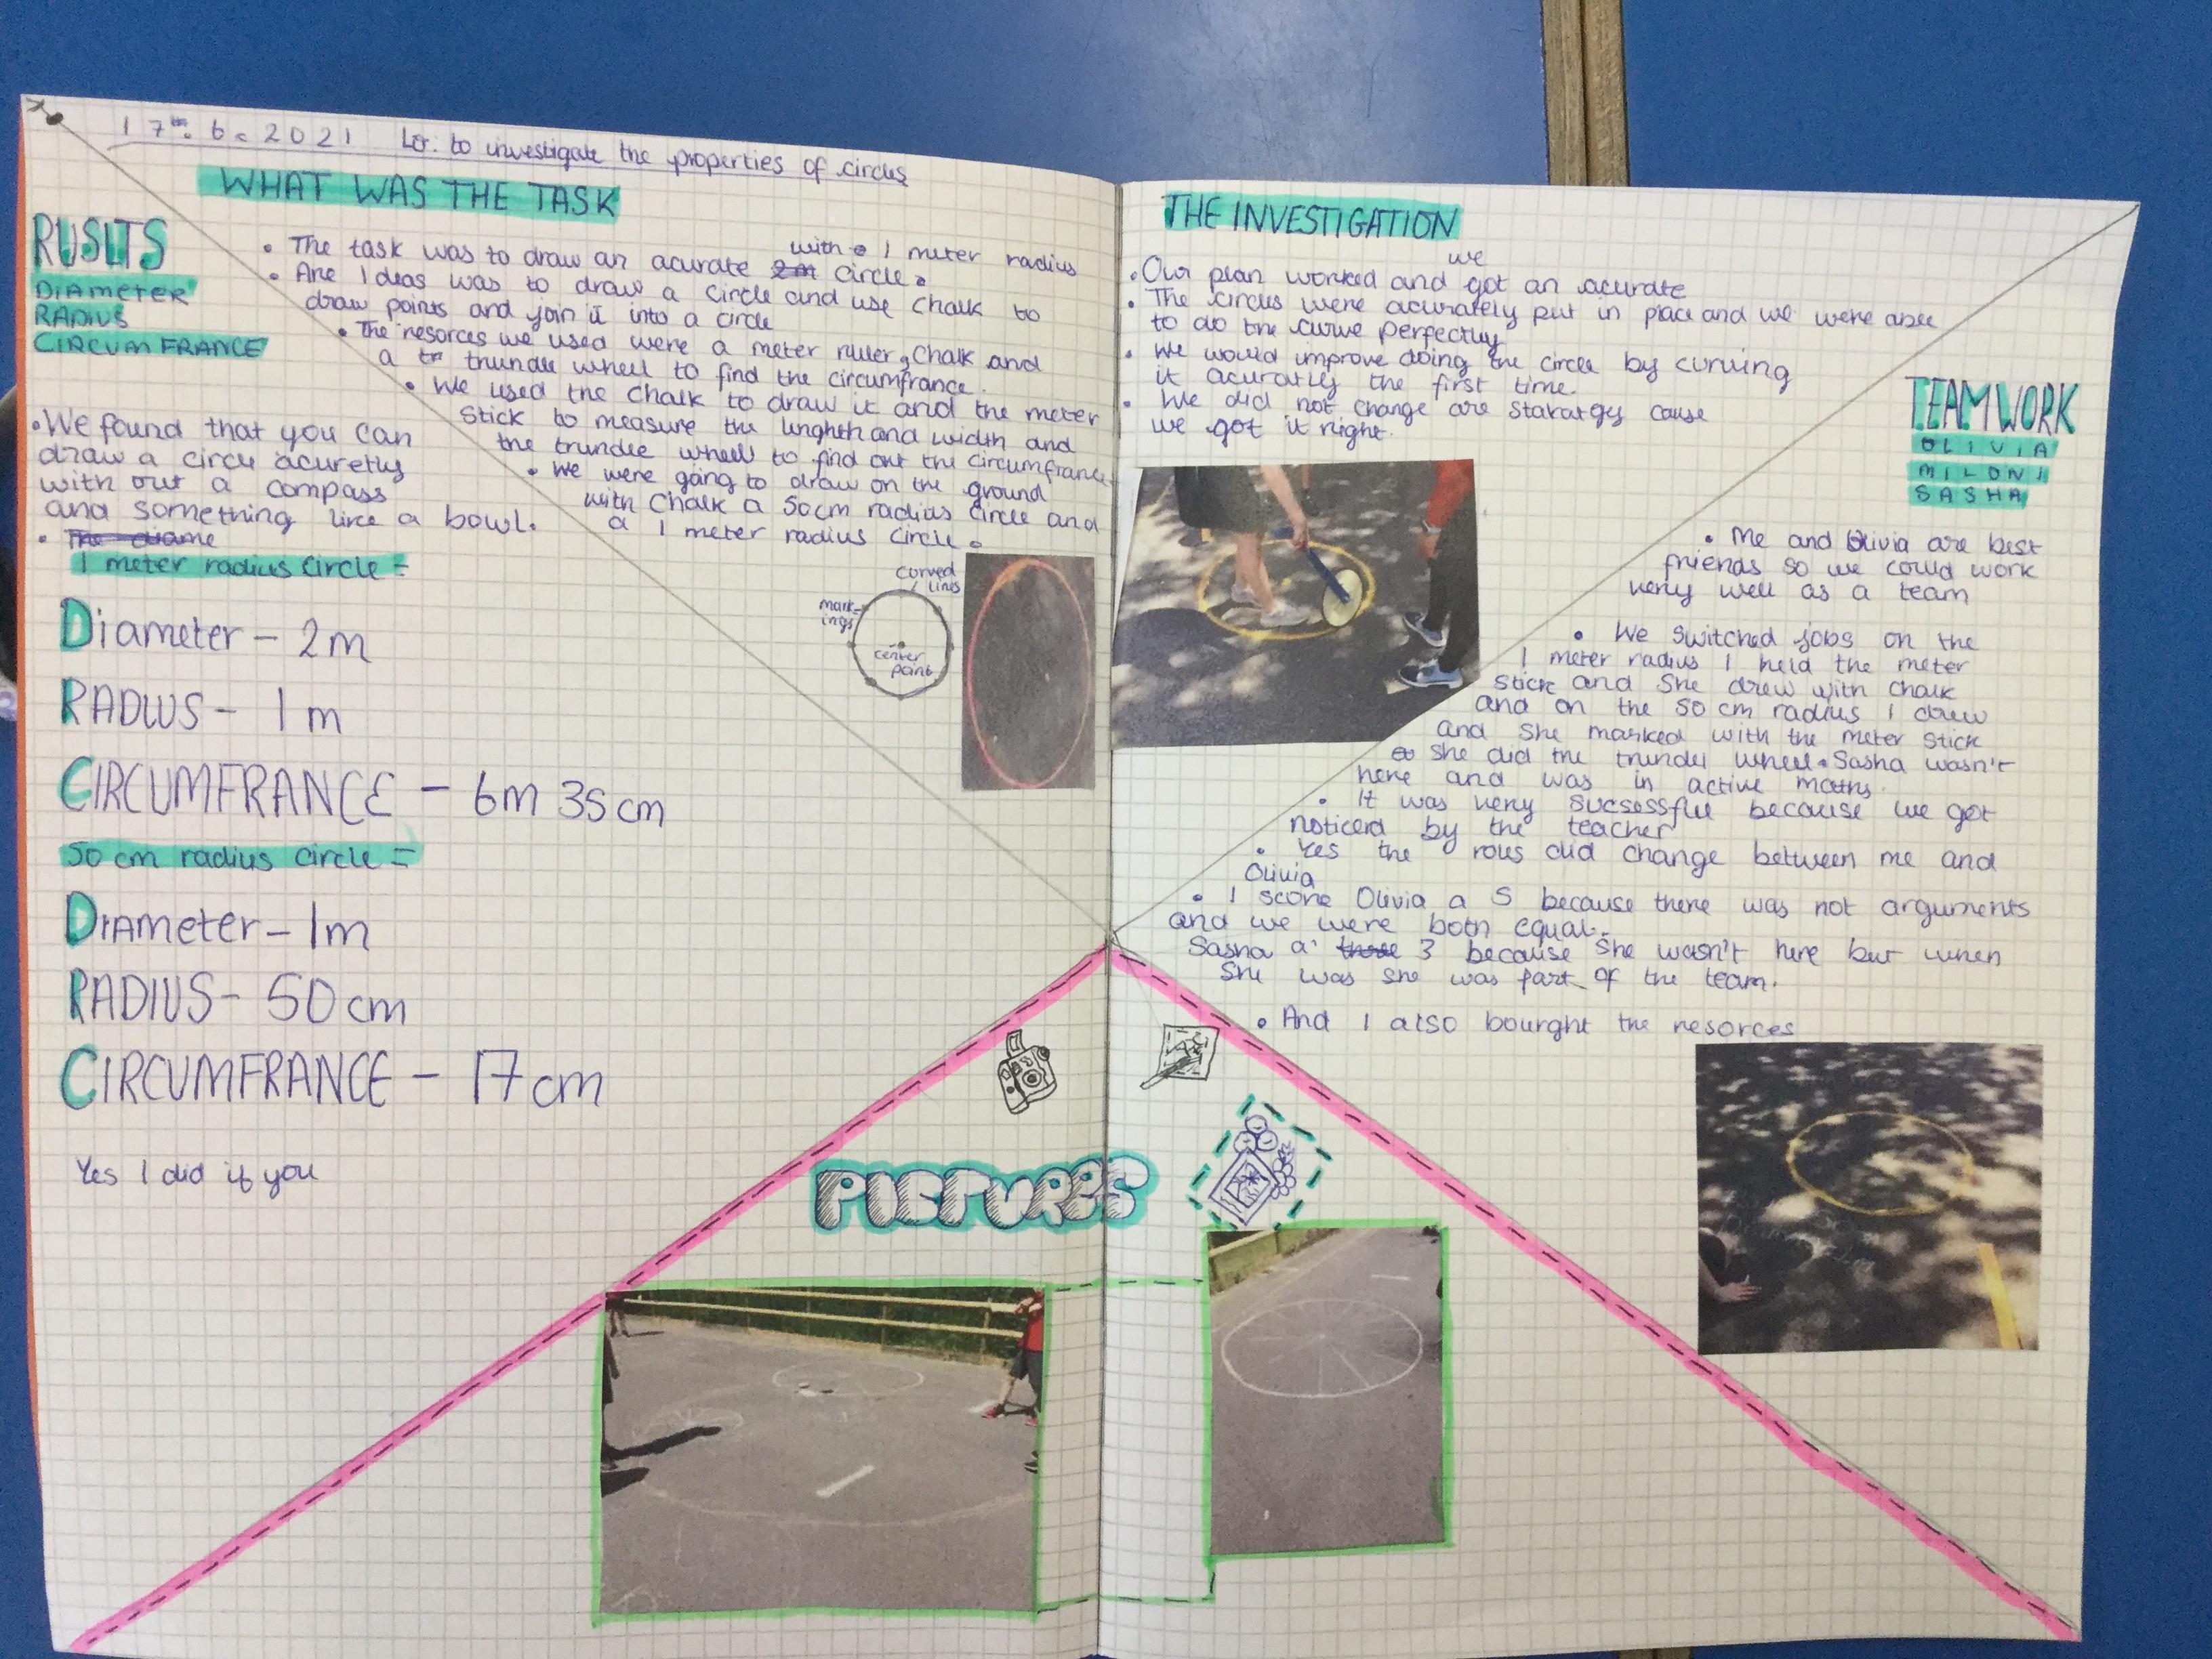 17th. 6. 2021 Lo: to investigate the properties of circles
WHAT WAS THE TASK
• The task was to draw an acurate 2m circle. with a 1 meter radius
• Are Ideas was to draw a circle and use chalk to
draw points and join it into a circle
• The resorces we used were a meter ruler, chalk and
a tr trundle wheel to find the circumfrance.
• We used the chalk to draw it and the meter
stick to measure the lenghth and width and
the trundle wheel to find out the circumfrance
• We were going to draw on the ground
with chalk a 50cm radius circle and
a 1 meter radius circle.
curved lines
mark-ings
center point
RUSLTS
DIAMETER
RADIUS
CIRCUMFRANCE
• We found that you can
draw a circle acuretly
with out a compass
and something like a bowl.
• The diame
1 meter radius circle =
Diameter - 2m
RADIUS - 1m
CIRCUMFRANCE - 6m 35cm
50 cm radius circle =
DIAMeter - 1m
RADIUS - 50cm
CIRCUMFRANCE - 17cm
Yes I did if you
THE INVESTIGATION
• Our plan worked and we got an acurate
• The circles were accurately put in place and we were able
to do the curve perfectly
• We would improve doing the circle by curving
it acuratly the first time.
• We did not change are staratgy cause
we got it right.
TEAMWORK
OLIVIA
MILONI
SASHA
• Me and Olivia are best
friends so we could work
very well as a team
• We switched jobs on the
1 meter radius I held the meter
stick and she drew with chalk
and on the 50 cm radius I drew
and she marked with the meter stick
she did the trundel wheel. Sasha wasn't
here and was in active maths.
• It was very sucsessful because we got
noticerd by the teacher
• Yes the rouls did change between me and
Olivia
• I score Olivia a 5 because there was not arguments
and we were both equal.
Sasha a 3 because she wasn't here but when
she was she was part of the team.
• And I also bourght the resorces
PICTURES